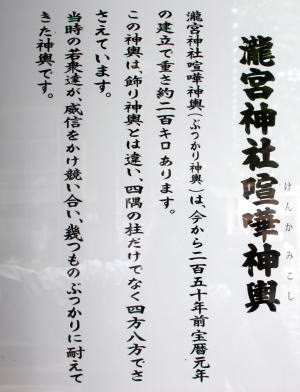 瀧宮神社喧嘩神輿
けんかみこし
瀧宮神社喧嘩神輿(ぶつかり神輿)は、今から二百五十年前宝暦元年
の建立で重さ約二百キロあります。
この神輿は、飾り神輿とは違い、四隅の柱だけでなく四方八方でさ
さえています。
当時の若衆達が、威信をかけ競い合い、幾つものぶつかりに耐えて
きた神輿です。